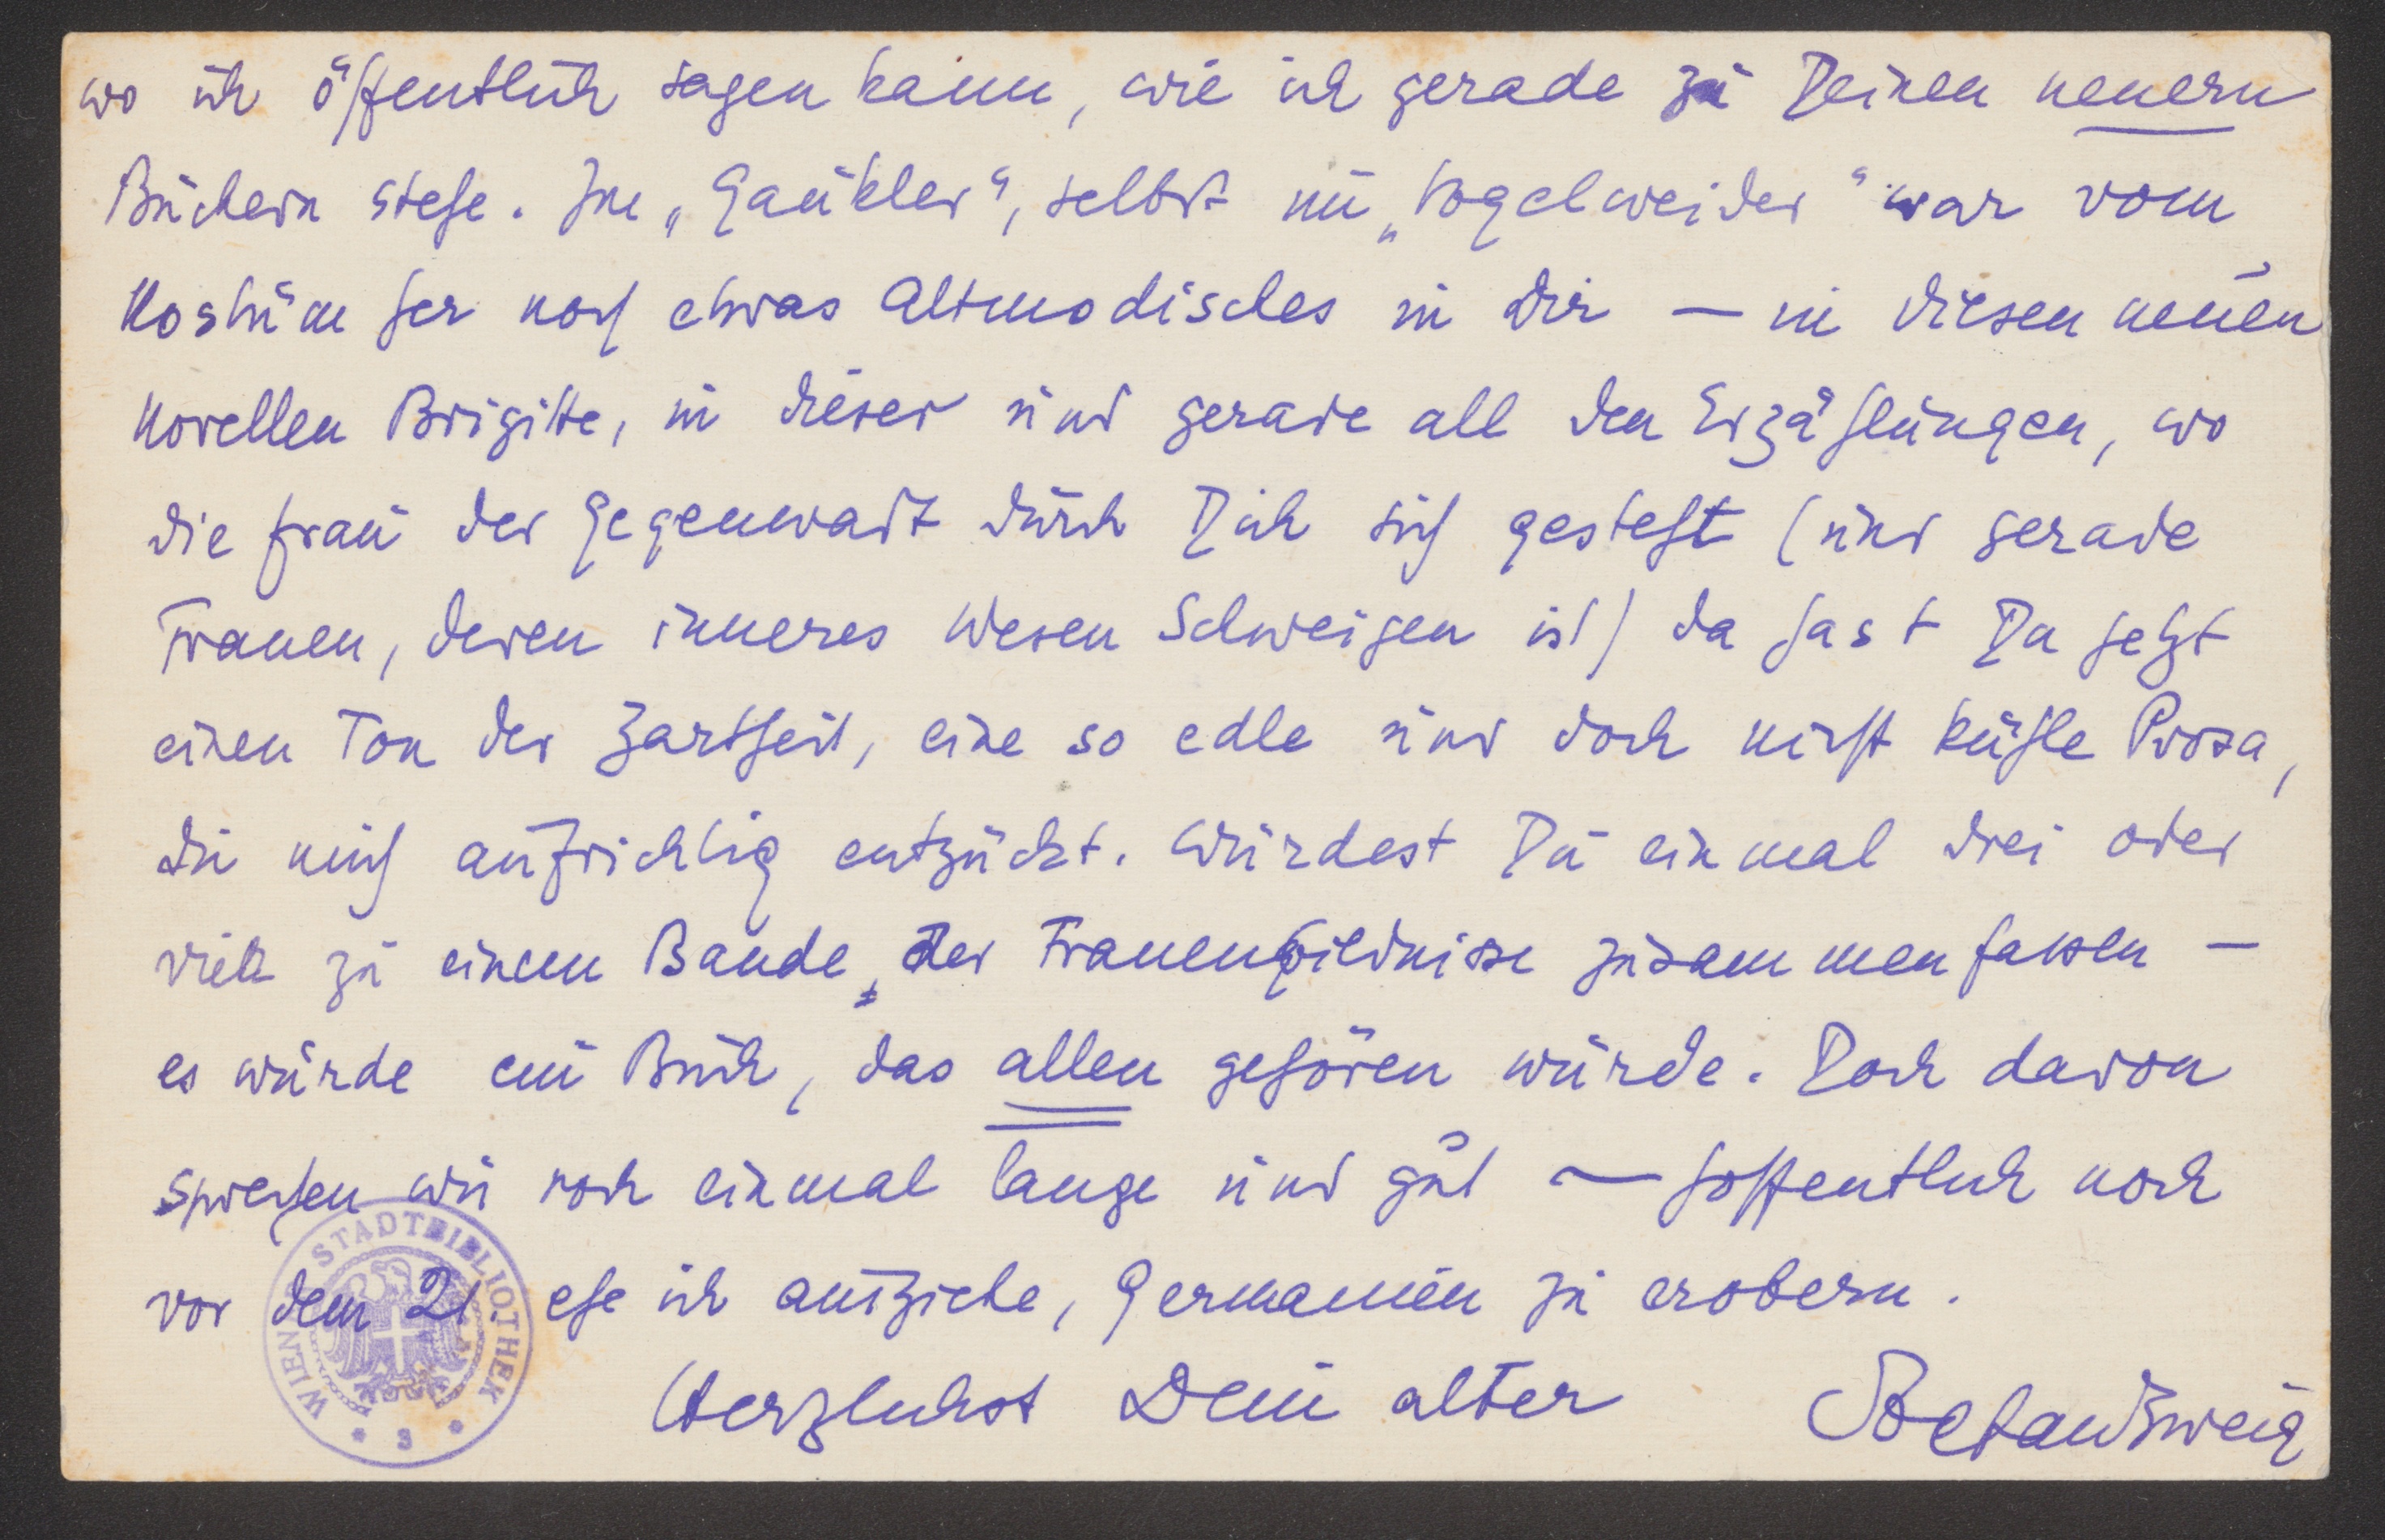 wo ich öffentlich sagen kann, wie ich gerade zu Deinen neuern
Büchern stehe. Im „Gaukler“, selbst im „Vogelweider“ war vom
Kostüm her noch etwas Altmodisches in dir — in diesen neuen
Novellen Brigitte, in dieser und gerade all den Erzählungen, wo
die Frau der Gegenwart durch Dich sich gesteht (und gerade
Frauen, deren inneres Wesen Schweigen ist) da hast Du jetzt
einen Ton der Zartheit, eine so edle und doch nicht kühle Prosa,
die mich aufrichtig entzückt. Würdest Du einmal drei oder
vier zu einem Bande der Frauenbildnisse zusammenfassen —
es würde ein Buch, das allen gehören würde. Doch davon
sprechen wir noch einmal lange und gut — hoffentlich noch
vor dem 21. ehe ich ausziehe, Germanien zu erobern.
Herzlichst Dein alter Stefan Zweig
WIENER STADTBIBLIOTHEK
* 3 *